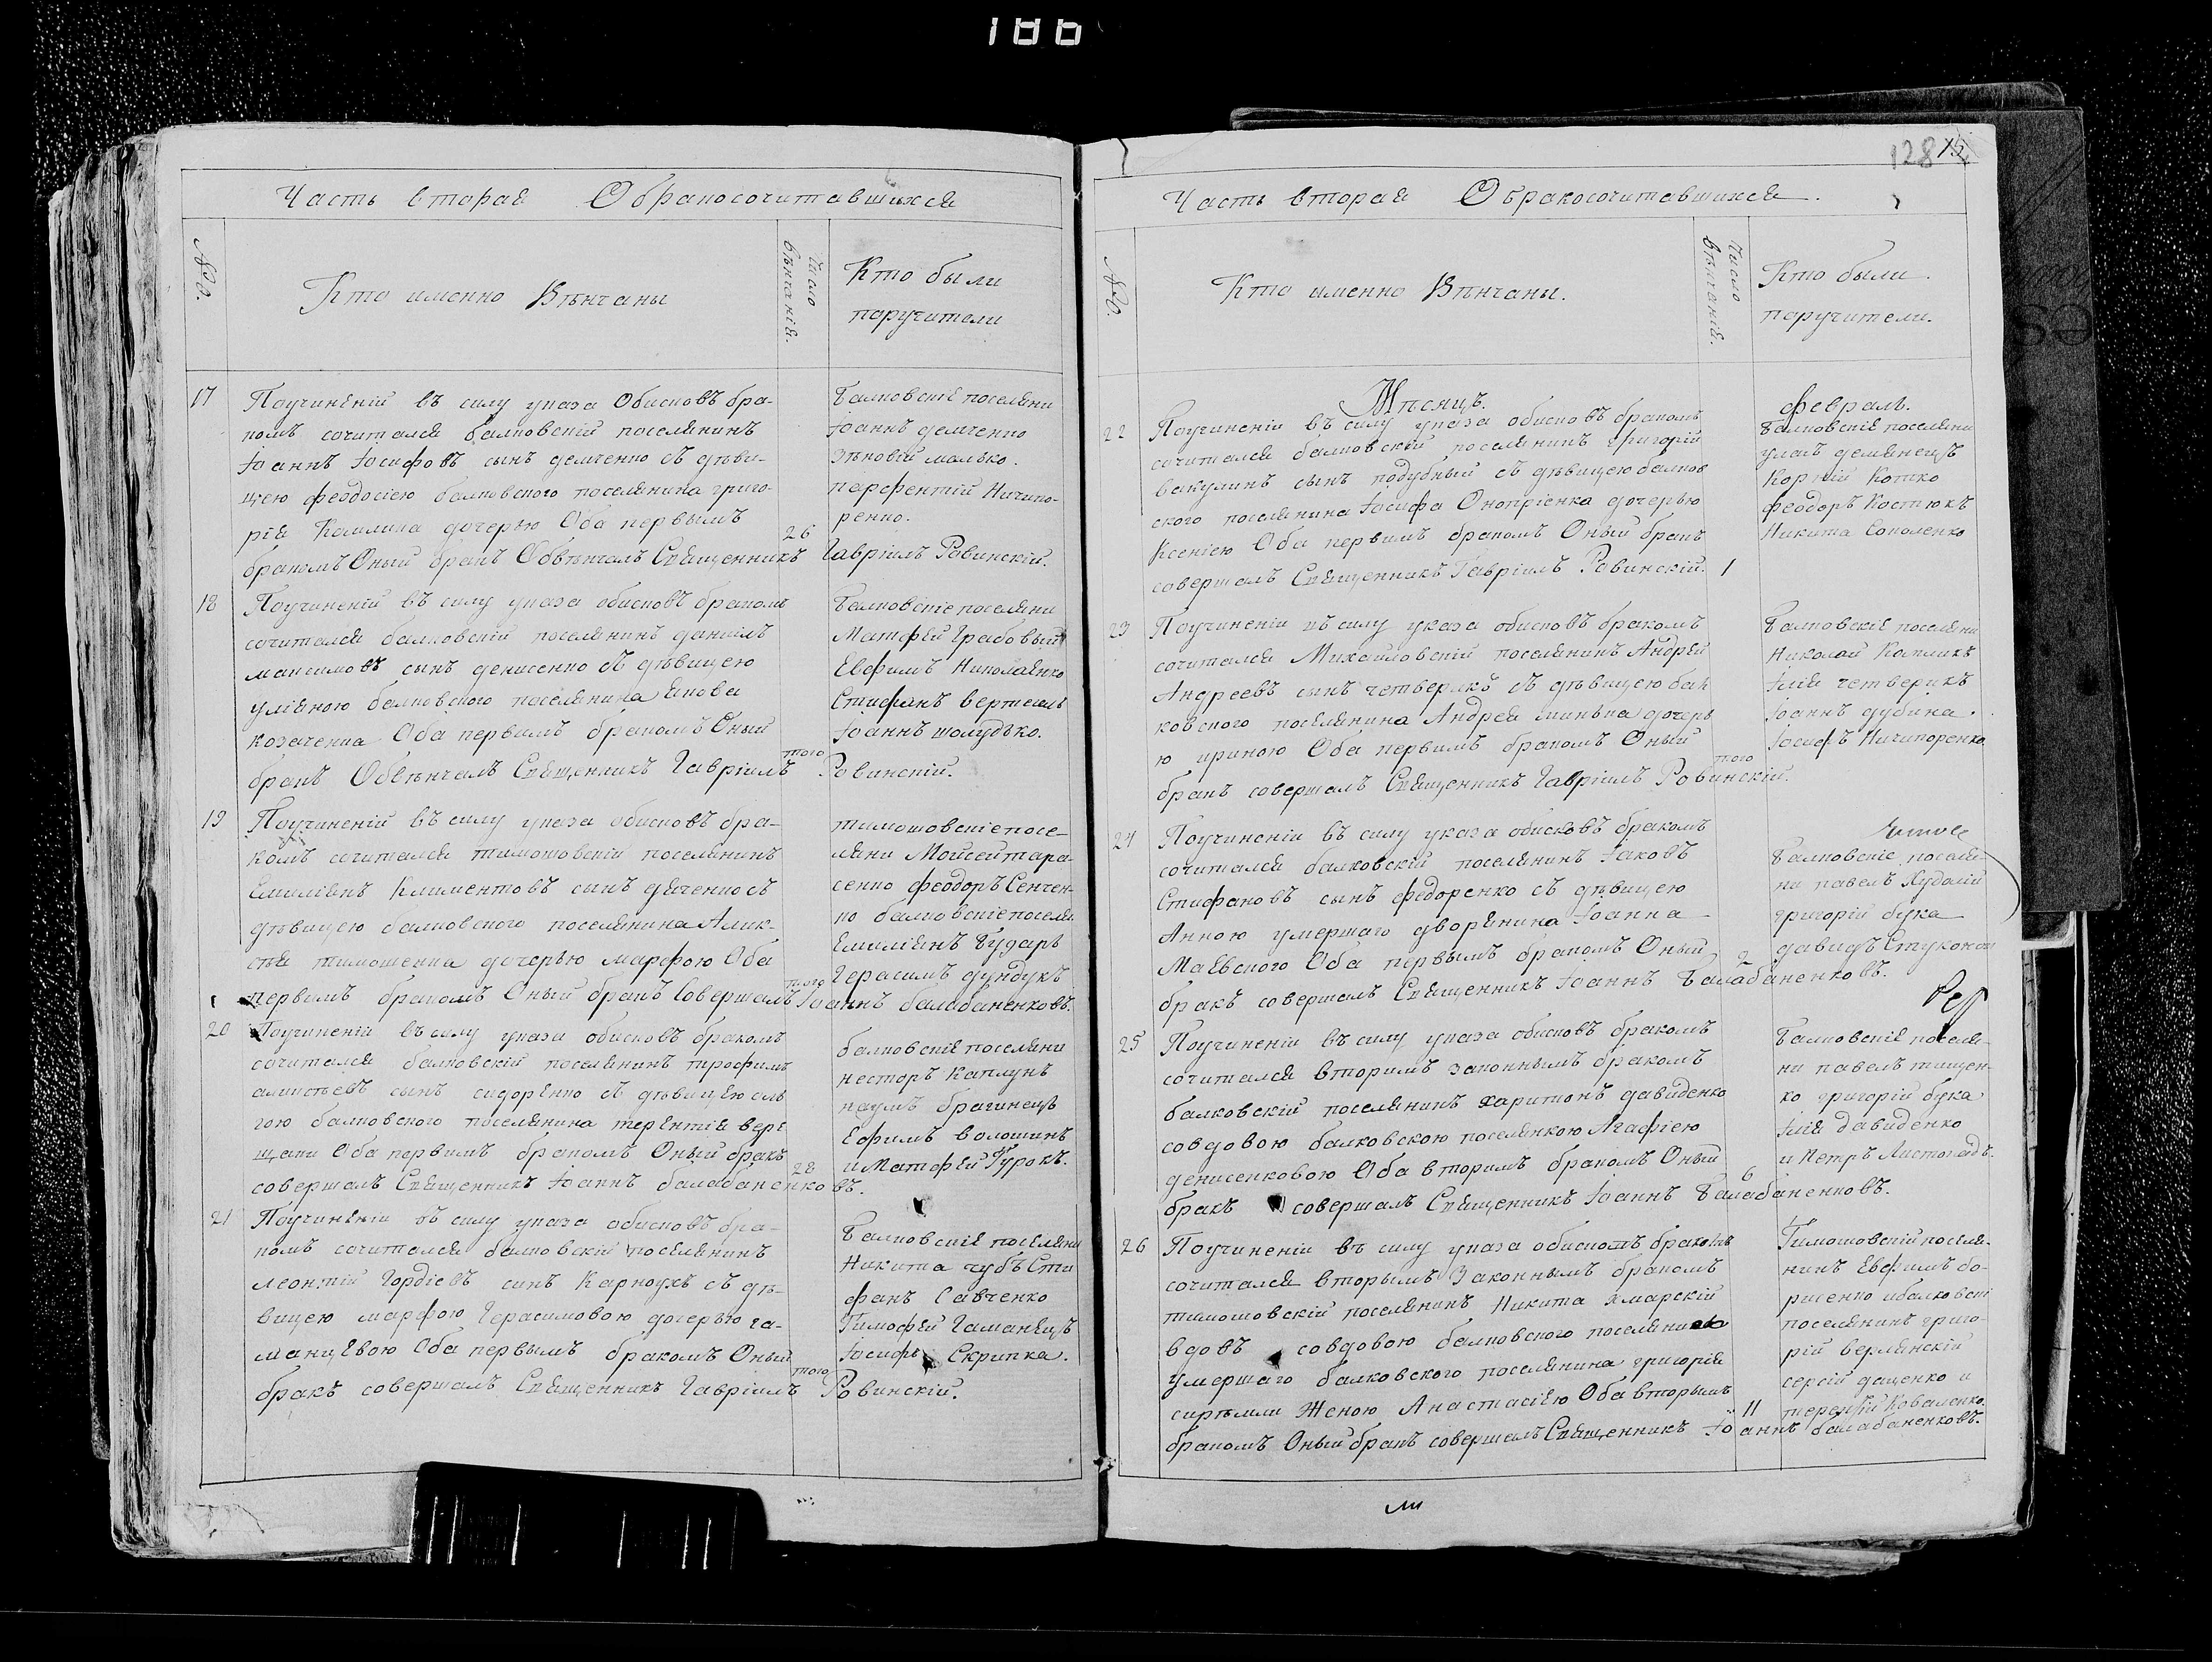 186
Часть вторая Обракосочитавшихся
№
Кто именно Вѣнчаны
Число вѣнчанія.
Кто были
поручители
17
Поучиненій въ силу указа Обисковъ бра-
комъ сочитался балковскій поселянинъ
Іоаннъ Іосифовъ сынъ демченко съ дѣви-
цею феодосіею балковского поселянина григо-
рія Калина дочерью Оба первымъ
бракомъ Оный бракъ Обвѣнчалъ Священникъ Гавріилъ Ровинскій.
26
Балковскіе поселяни
Іоаннъ демченко
Зѣновій малько.
парфентій Ничипо-
ренко.
18
Поучиненій въ силу указа обисковъ бракомъ
сочитался балковскій поселянинъ даніилъ
максимовъ сынъ денисенко съ дѣвицею
уліяною балковского поселянина якова
козаченка Оба первимъ бракомъ Оный
бракъ Обвѣнчалъ Священникъ Гавріилъ Ровинскій.
того
Балковскіе поселяни
Матфей Грабовый
Евфимъ Николаенко
Стифанъ вертегелъ
Іоаннъ шолудько.
19
Поучиненій въ силу указа обисковъ бра-
комъ сочитался тимошовскій поселянинъ
Емиліянъ Климентовъ сынъ дяченко съ
дѣвицею балковского поселянина Алик-
сѣя тимошенка дочерью марфою Оба
первимъ бракомъ Оный бракъ Совершалъ Іоаннъ балабаненковъ.
того
тимошовскіе посе-
ляни Мойсей тара-
сенко феодоръ Сенчен-
ко балковскіе поселя.
Емиліянъ Бударъ
Герасимъ дундукъ
20
Поучиненій въ силу указа обисковъ бракомъ
сочитался балковскій поселянинъ трофимъ
аликсѣевъ сынъ сидоренко съ дѣвицею оль
гою балковского поселянина терентія верг
щаги Оба первимъ бракомъ Оный бракъ
совершалъ Священникъ Іоаннъ балабаненковъ.
28
балковскіе поселяни
несторъ каплунъ
наумъ брагинецъ
Ефимъ волошинъ
и Матфей Гурокъ.
21
Поучиненій въ силу указа обисковъ бра-
комъ сочитался балковскій поселянинъ
леонтій Гордіевъ синъ Карнаухъ съ дѣ-
вицею марфою Герасимовою дочерью га-
манцевою Оба первымъ бракомъ Оный
бракъ совершалъ Священникъ Гавріилъ Ровинскій.
того
Балковскіе поселяни
Никита чубъ Сти
фанъ Савченко
Тимофей Гаманецъ
Іосифъ Скрипка.
128
Часть вторая Обракосочитавшихся.
№
Кто именно Вѣнчаны.
Число вѣнчанія.
Кто были
поручители.
Мѣсяцъ.
февраль.
22
Поучиненіи въ силу указа обисковъ бракомъ
сочитался балковскій поселянинъ григорій
вакулинъ сынъ подубный съ дѣвицею балков
ского поселянина Іосифа Оноприенка дочерью
Ксеніею Оба первимъ бракомъ Оный бракъ
совершалъ Священникъ Гавріилъ Ровинскій. 1
Балковскіе поселяни
улас демянецъ
Корній Котко
феодоръ Костюкъ
Никита Соколенко
23
Поучиненіи въ силу указа обисковъ бракомъ
сочитался Михайловскій поселянинъ Андрей
Андреевъ сынъ четверикъ съ дѣвицею бал
ковского поселянина Андрея шинька дочерь
ю ириною Оба первимъ бракомъ Оный
бракъ совершалъ Священникъ Гавріилъ Ровинскій.
того
Балковскіе поселяни
Николай Капликъ
Илія четверикъ
Іоаннъ дубина.
Іосифъ Ничипоренко.
24
Поучиненіи въ силу указа обисковъ бракомъ
сочитался балковскій поселянинъ Іаковъ
Стифановъ сынъ федоренко съ дѣвицею
Анною умершаго дворянина Іоанна
Маевского Оба первымъ бракомъ Оный
бракъ совершалъ Священникъ Іоаннъ Балабаненковъ.
2
Балковскіе поселя-
ни павелъ Худолій
григорій бука
давидъ Стуконог
25
Поучиненіи въ силу указа обисковъ бракомъ
сочитался вторимъ законнымъ бракомъ
балковскій поселянинъ харитонъ давиденко
совдовою балковскою поселянкою Агафіею
денисенковою Оба вторимъ бракомъ Оный
бракъ совершалъ Священникъ Іоаннъ Балабаненковъ.
6
Балковскіе поселя-
ни павелъ тищен-
ко григорій бука
Илія давиденко
и Петръ Листопадъ.
26
Поучиненіи въ силу указа обисковъ бракомъ
сочитался вторымъ Законнымъ бракомъ
тимошовскій поселянинъ Никита хмарскій
вдовъ совдовою балковского поселянина
умершаго балковского поселянина григорія
Женою Анастасіею Оба вторымъ
бракомъ Оный бракъ совершалъ Священникъ Іоаннъ балабаненковъ.
11
Тимошовскій поселя-
нинъ Евфимъ бо-
рисенко ибалковскі
поселянинъ григо-
рій верлянскій
сергій даценко и
терентій Коваленко.